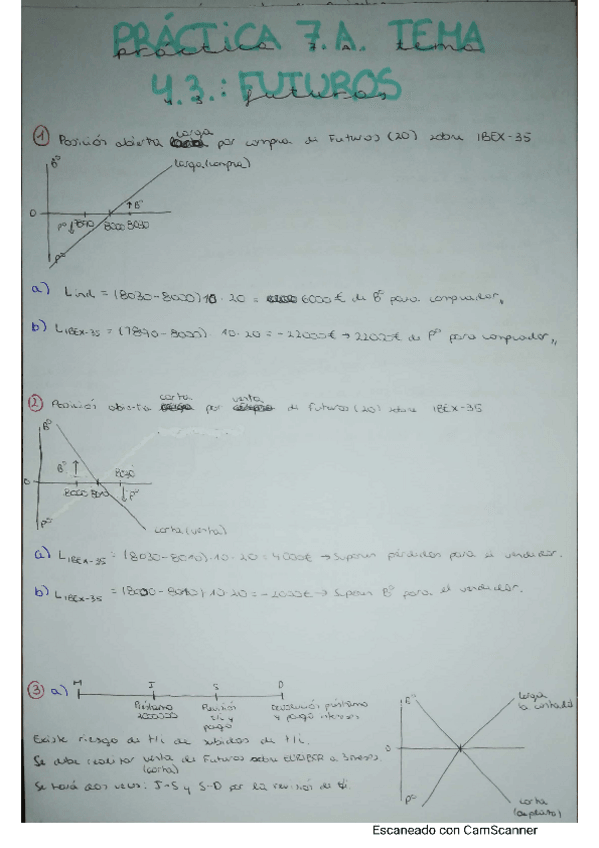 PRÁCTICA 7.A. TEMA
práctica 7.a. tema
4.3.: FUTUROS
4.3. futuros
① Posición abierta larga por compra de Futuros (20) sobre IBEX-35
B⁰
larga (compra)
↑B⁰
0
P⁰↓ 7890 8000 8030
P⁰
a) Lind = (8030-8000)10·20 = 6000€ de B⁰ para comprador,,
b) LIBEX-35 = (7890-8000)·10·20 = -22000€ → 22000€ de P⁰ para comprador,,
② Posición abierta corta por venta de Futuros (20) sobre IBEX-35
B⁰
B⁰ ↑
8030
0
8000 8010 ↓P⁰
P⁰
corta (venta)
a) LIBEX-35 = (8030-8010)·10·20 = 4000€ → Suponen pérdidas para el vendedor.
b) LIBEX-35 = (8000-8010)·10·20 = -2000€ → Suponen B⁰ para el vendedor.
③ a) M J S D
Préstamo 2000000
Revisión t/i y pago
Devolución préstamo y pago intereses
B⁰
larga
0
P⁰
corta
Existe riesgo de t/i de subidas de t/i.
Se debe realizar venta de Futuros sobre EURIBOR a 3 meses.
(corta)
Se hará dos veces: J-S y S-D por la revisión de t/i
Escaneado con CamScanner